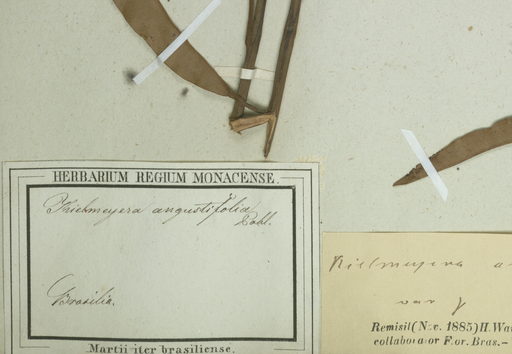 HERBARIUM REGIUM MONACENSE.
Kielmeyera angustifolia
Pohl.
Brasilia.
Martii iter brasiliense.
Kielmeyera
var γ
Remisit (Nov. 1885) H. Wa
collaborator Flor. Bras.-